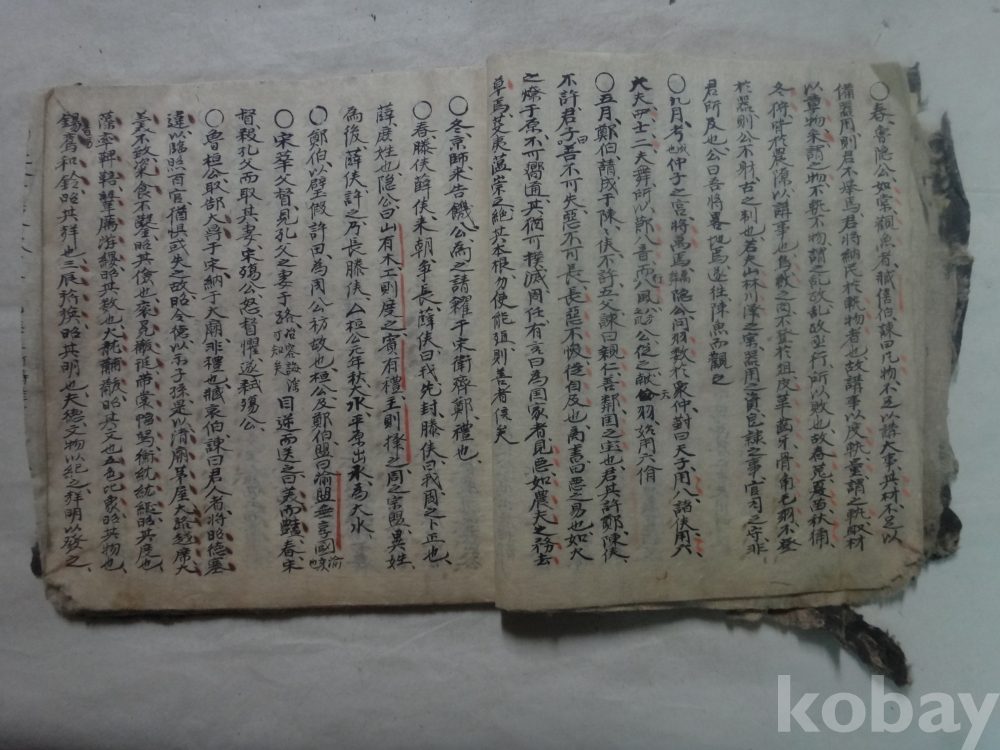 ○春魯隱公如棠觀魚者臧僖伯諫曰凡物不足以講大事其材不足以
備器用則君不擧焉君將納民於軌物者也故講事以度軌量謂之軌取材
以章物采謂之物不軌不物謂之亂政亂政亟行所以敗也故春蒐夏苗秋獮
冬狩皆於農隙以講事也鳥獸之肉不登於俎皮革齒牙骨角毛羽不登
於器則公不射古之制也若夫山林川澤之實器用之資皂隷之事官司之守非
君所及也公曰吾將畧地焉遂往陳魚而觀之
○九月考仲子之宮將萬焉隱公問羽數於衆仲對曰天子用八諸侯用六
大夫四士二夫舞所以節八音而行八風公從之獻六羽始用六佾
○五月鄭伯請成于陳陳侯不許五父諫曰親仁善鄰國之宝也君其許鄭陳侯
不許君子曰善不可失惡不可長長惡不悛從自及也商書曰惡之易也如火
之燎于原不可嚮迩其猶可撲滅周任有言曰爲国家者見惡如農夫之務去
草焉芟夷蘊崇之絶其本根勿使能殖則善者信矣
○冬京師來告饑公爲之請糴于宋衛齊鄭禮也
○春滕侯薛侯來朝爭長薛侯曰我先封滕侯曰我周之卜正也
薛庶姓也隱公曰山有木工則度之賓有禮主則擇之周之宗盟異姓
爲後薛侯許之乃長滕侯 桓公元年秋大水平原出水爲大水
○鄭伯以璧假許田爲周公祊故也桓公及鄭伯盟曰渝盟無享國
○宋華父督見孔父之妻于路目逆而送之曰美而豔春宋
督殺孔父而取其妻宋殤公怒督懼遂弑殤公
○魯桓公取郜大鼎于宋納于大廟非禮也臧哀伯諫曰君人者將昭德塞
違以臨照百官猶惧或失之故昭令德以示子孫是以淸廟茅屋大路越席大
羹不致粢食不鑿昭其儉也袞冕黻珽帶裳幅舄衡紞紘綖昭其度也
藻率鞞鞛鞶厲游纓昭其數也火龍黼黻昭其文也五色比象昭其物也
錫鸞和鈴昭其聲也三辰旂旗昭其明也夫德文物以紀之聲明以發之